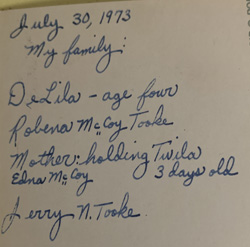 July 30, 1973
My family:
DeLila - age four
Robena McCoy Tooke
Mother: holding Twila
Edna McCoy 3 days old
Jerry N. Tooke.